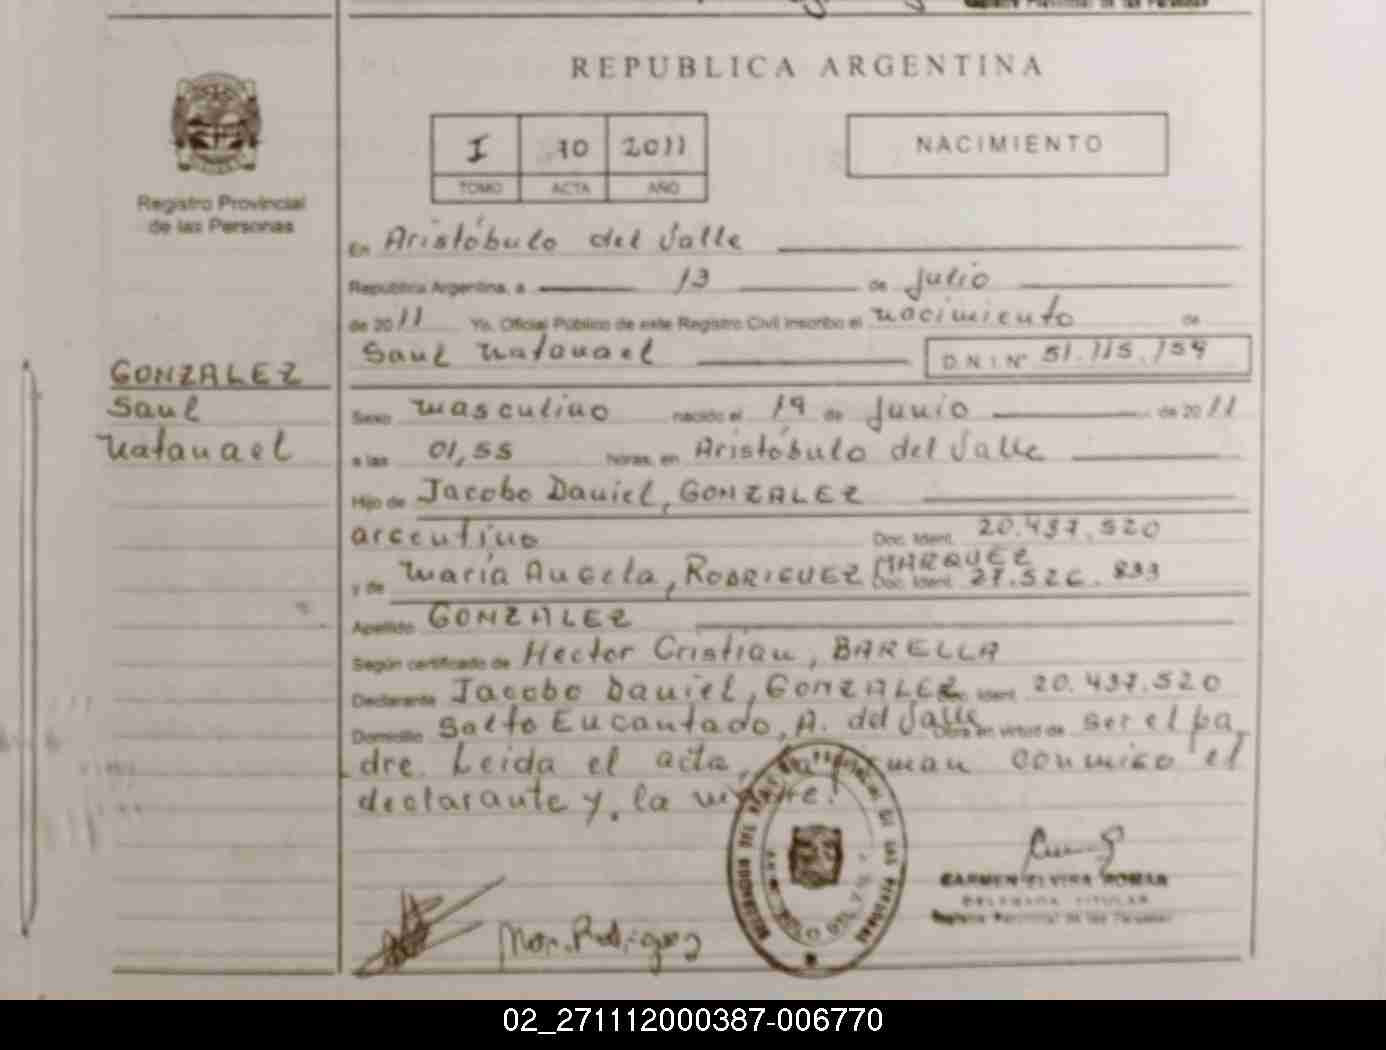 REPUBLICA ARGENTINA
I 70 2011
TOMO ACTA AÑO
NACIMIENTO
Registro Provincial
de las Personas
En Aristóbulo del Valle
Republica Argentina, a 13 de julio
de 2011 Yo, Oficial Público de este Registro Civil inscribo el nacimiento de
Saul Natanael D.N.I. Nº 51.115.159
GONZALEZ
Saul
Natanael
Sexo masculino nacido el 19 de junio de 2011
a las 01,55 horas, en Aristóbulo del Valle
Hijo de Jacobo Daniel, GONZALEZ
argentino Doc. Ident. 20.437.520
y de María Angela, RODRIGUEZ MARQUEZ Doc. Ident. 27.526.833
Apellido GONZALEZ
Según certificado de Hector Cristian, BARELLA
Declarante Jacobo Daniel, GONZALEZ Doc. Ident. 20.437.520
Domicilio Salto Encantado, A. del Valle Obra en virtud de ser el pa
dre. Leida el acta, la firman conmigo el
declarante y, la madre.
Rodriguez
CARMEN ELVIRA ROMAN
DELEGADA TITULAR
Registro Provincial de las Personas
02_271112000387-006770